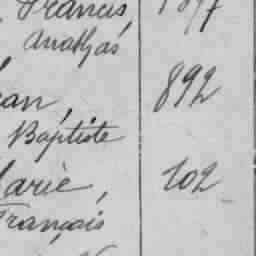 Francis,
Anathas
ean, 892
Baptiste
Marie, 102
François